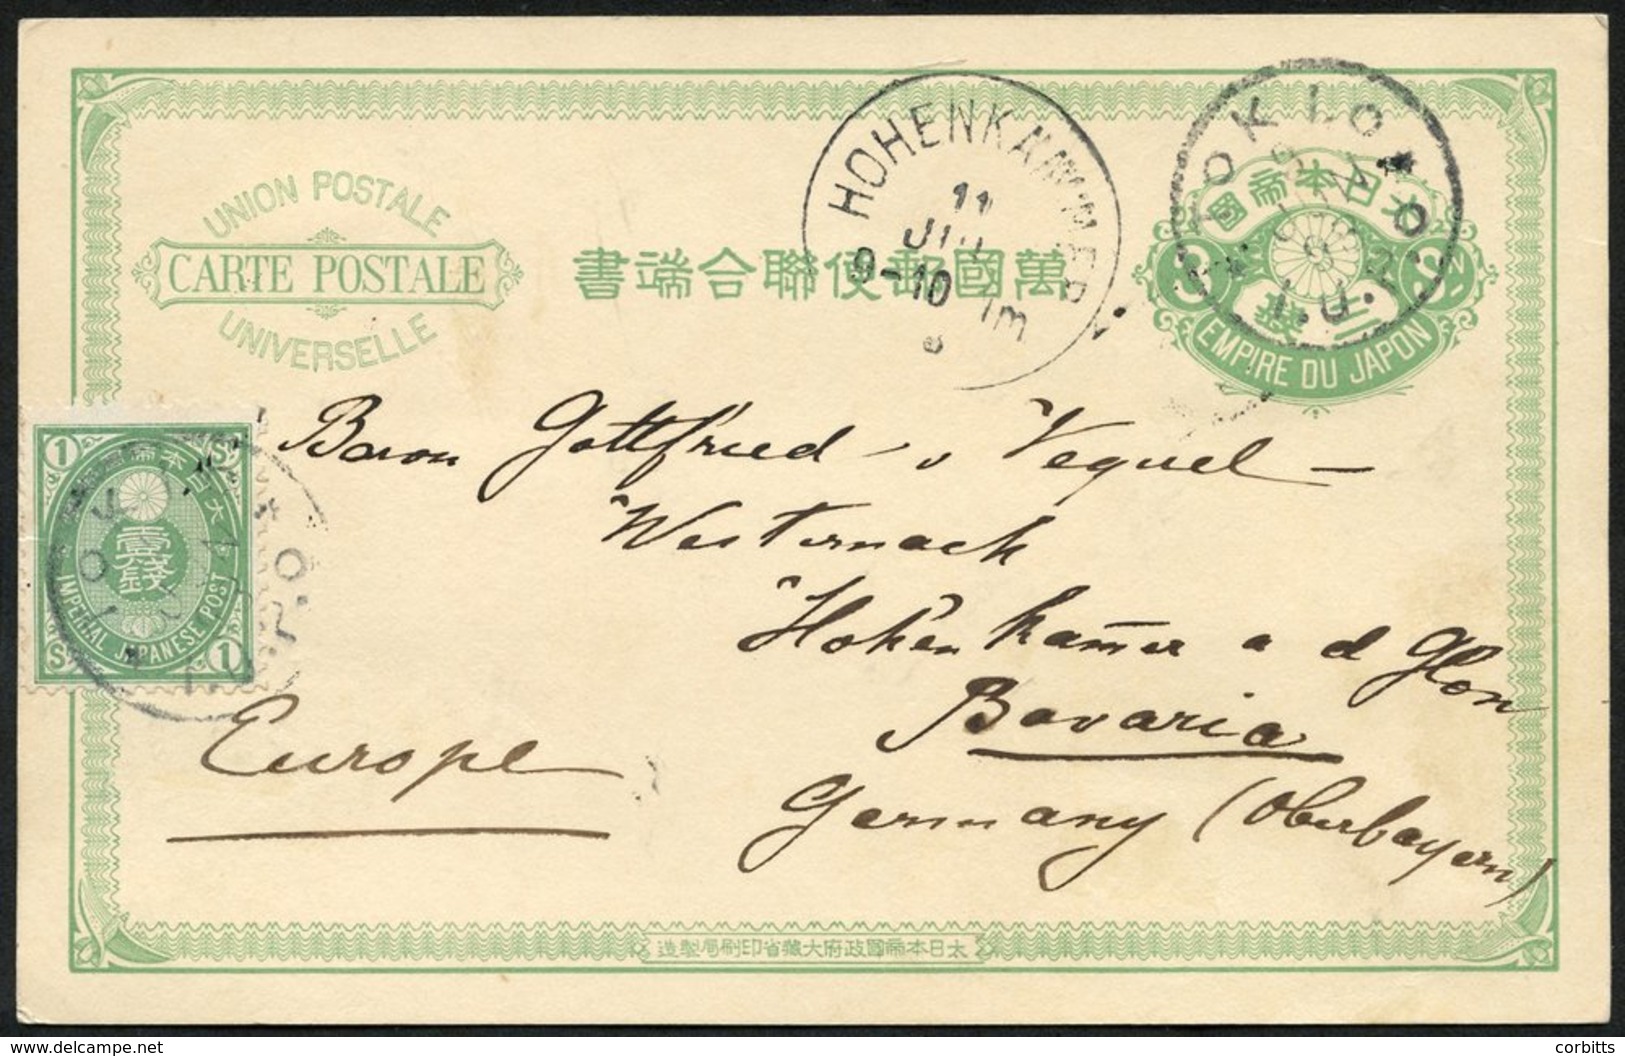 UNION POSTALE
CARTE POSTALE
UNIVERSELLE
書端合聯便郵國萬
HOHENKAMMER
11
JUL
9-10
TOKIO
I.J.P.O.
國帝本日大
三錢
EMPIRE DU JAPON
1 S
國帝本日大
壹錢
IMPERIAL JAPANESE POST
S 1
TOKIO
I.J.P.O.
Baron Gottfried v Vequel-
Westernach
Hohenkam̄er a d Glon
Bavaria
Germany (Oberbayern)
Europe
造製局刷印省藏大府政國帝本日大
delcampe.net
corbitts